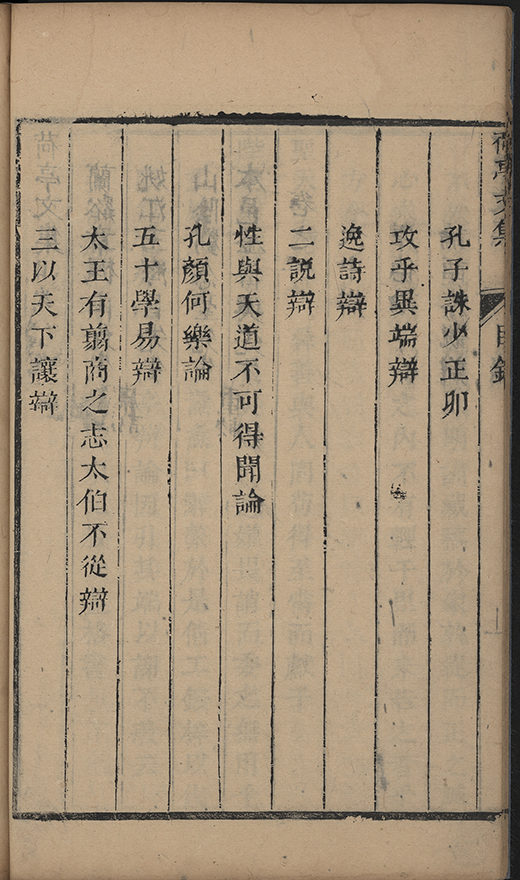 荷亭文集 目錄
孔子誅少正卯
攻乎異端辯
逸詩辯
二説辯
性與天道不可得聞論
孔顔何樂論
五十學易辯
太王有翦商之志太伯不從辯
三以天下讓辯